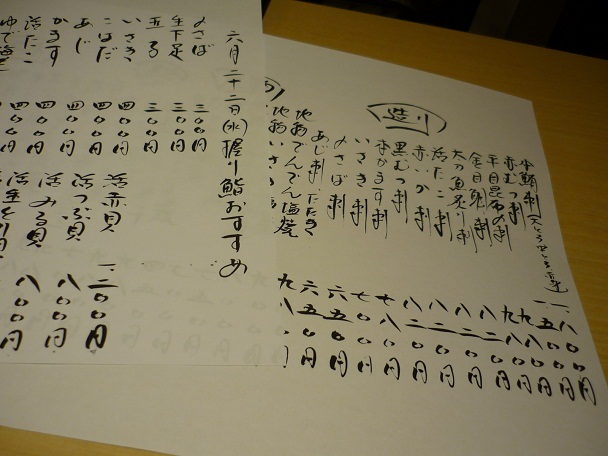 造り
本鮪刺(大とろ中とろ赤身) 一、八〇〇円
赤むつ刺 一、五〇〇円
平目昆布〆刺 九八〇円
金目鯛刺 九八〇円
太刀魚炙り刺 八二〇円
活たこ刺 八二〇円
赤いか刺 八二〇円
黒むつ刺 八二〇円
本かます刺 七八〇円
いさき刺 七〇〇円
〆さば刺 六五〇円
あじ刺 たたき 六五〇円
地物でんでん塩焼 九八〇
地物いさき
六月二十二日(水)握り鮨おすすめ
〆さば 三〇〇円
生下足 三〇〇円
三〇〇円
いさき 四〇〇円
こはだ 四〇〇円
あじ 四〇〇円
かます 四〇〇円
活たこ
ゆで海老
活赤貝 一、二〇〇円
活つぶ貝 八〇〇円
活みる貝 八〇〇円